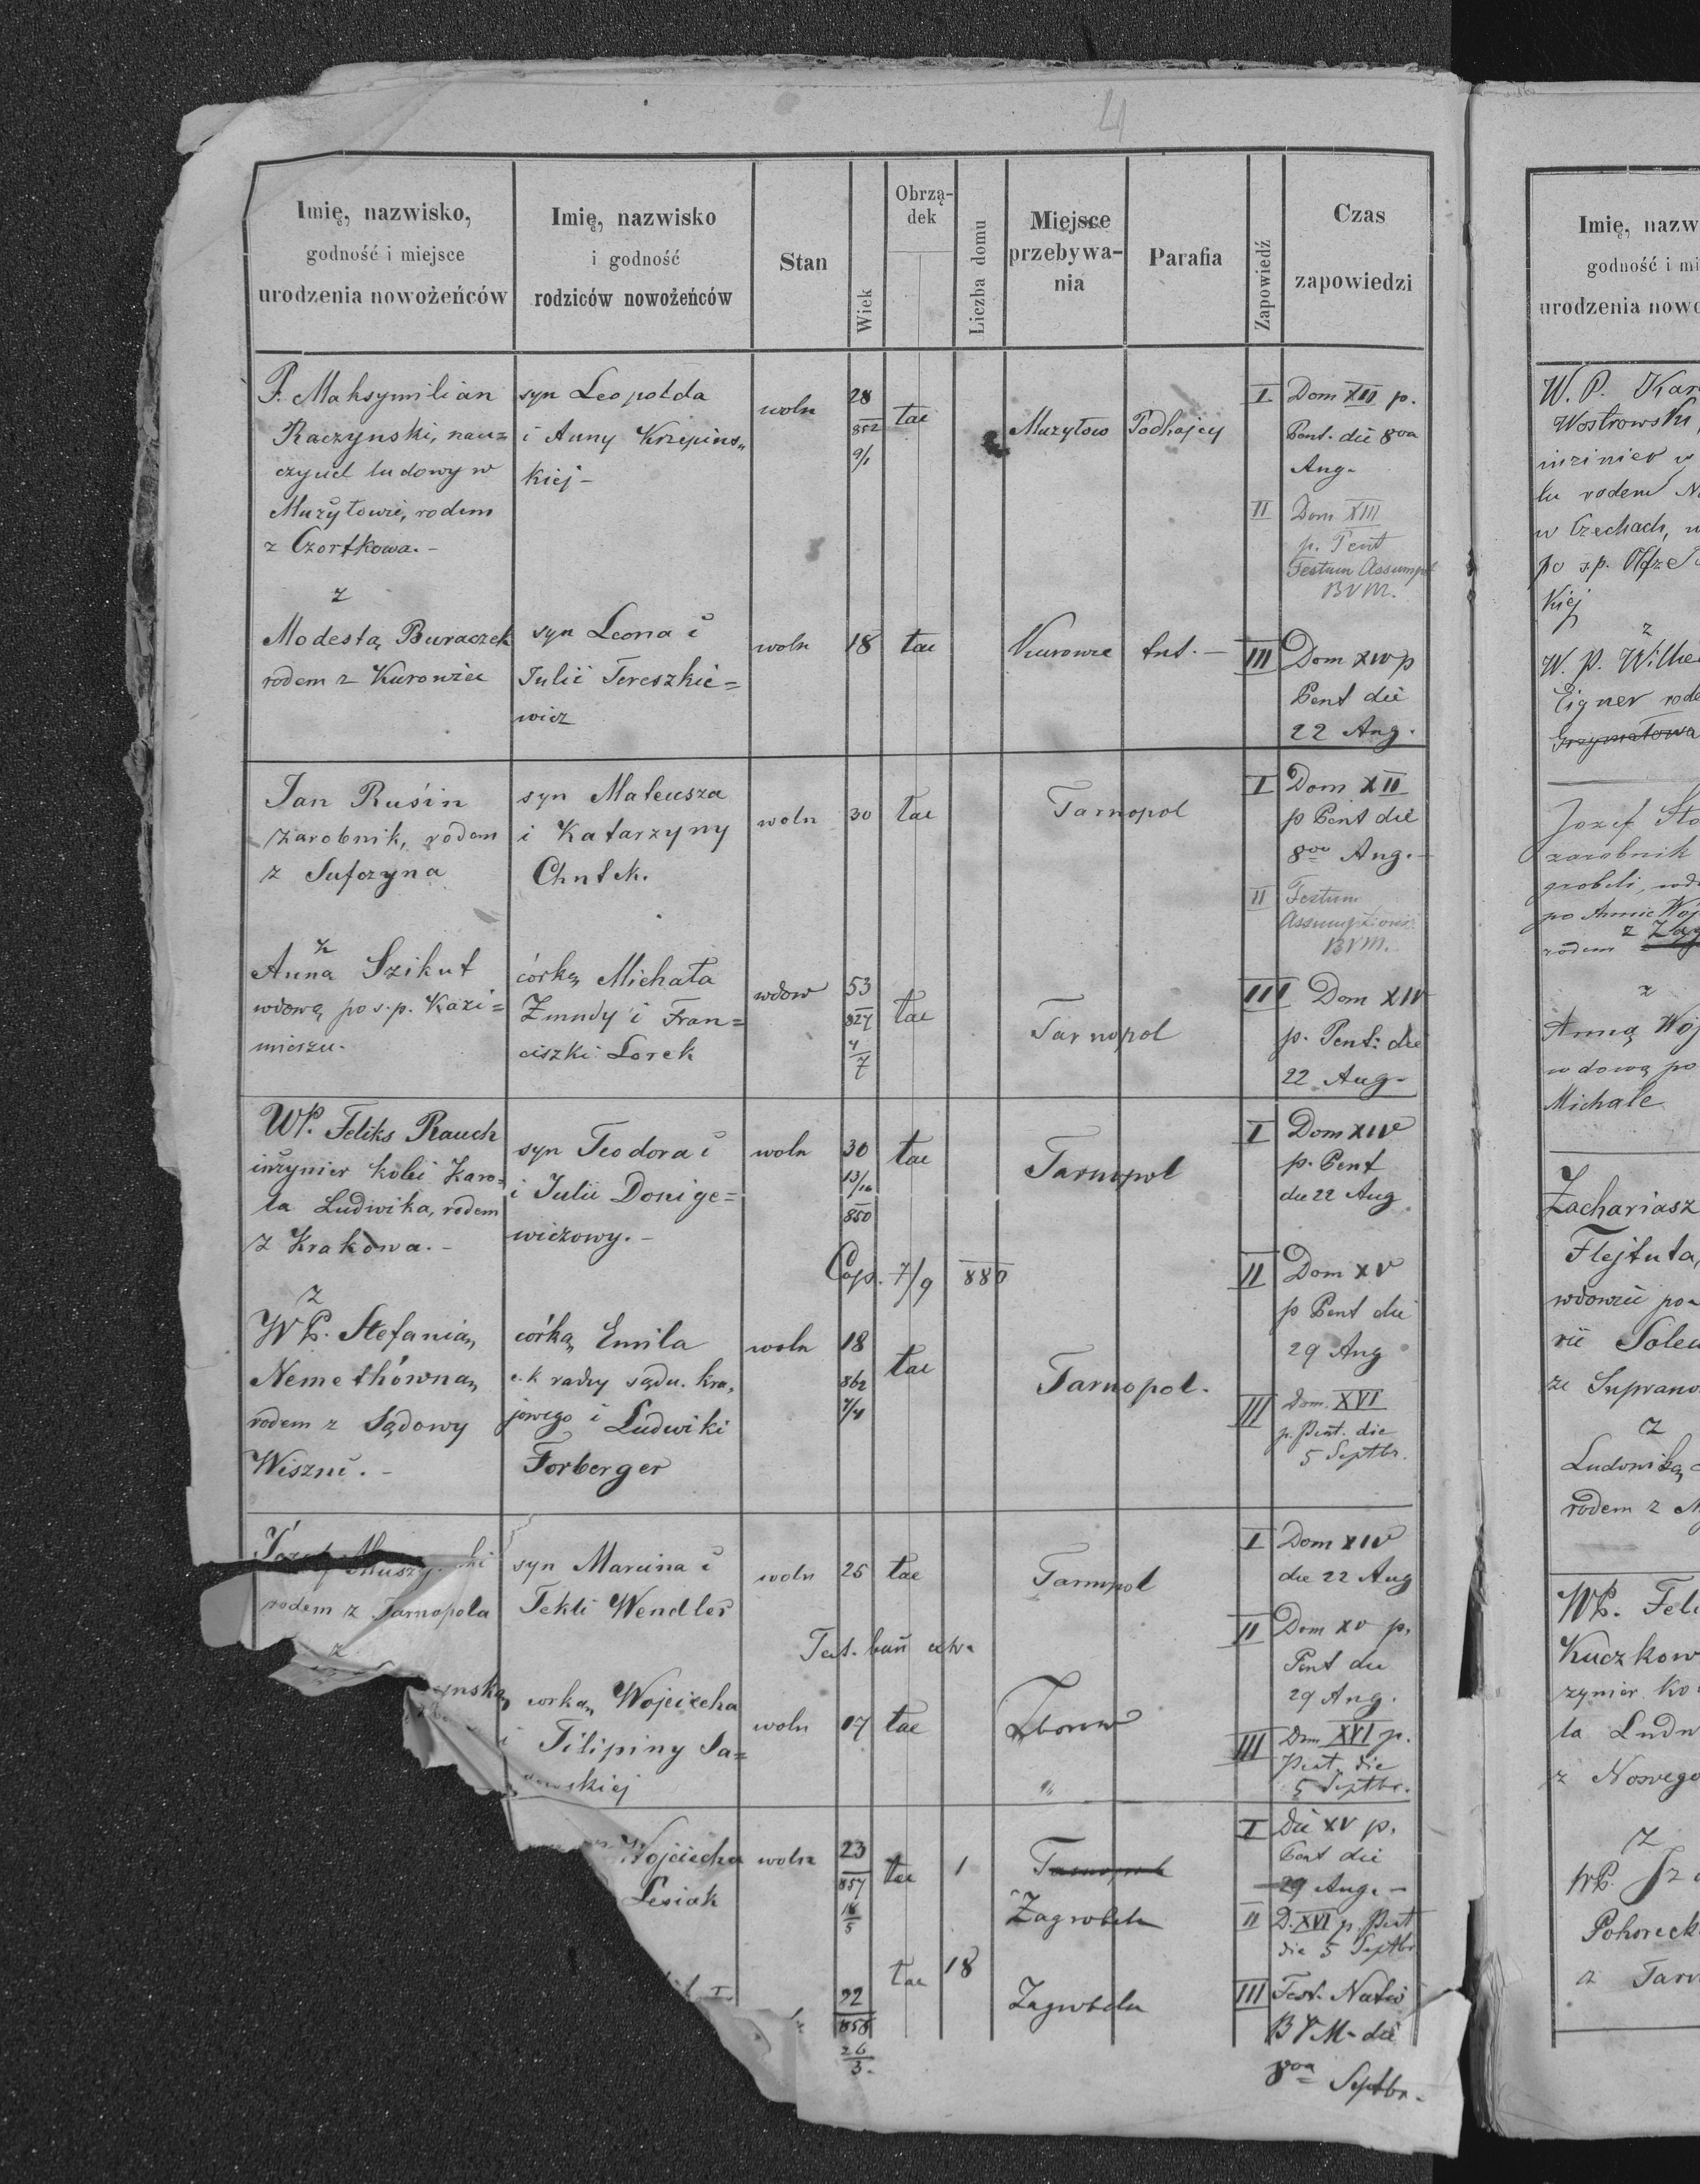 4
Imię, nazwisko,
godność i miejsce
urodzenia nowożeńców
Imię, nazwisko
i godność
rodziców nowożeńców
Stan
Wiek
Obrzą-
dek
Liczba domu
Miejsce
przebywa-
nia
Parafia
Zapowiedź
Czas
zapowiedzi
P. Maksymilian
Raczynski, nau=
czyciel ludowy w
Muzyłowie, rodem
z Czortkowa. -
syn Leopolda
i Anny Krzepins„
kiej -
woln
28
852
9/1
łac
Muzyłow
Podhajcy
I Dom XII p.
Pent. die 8va
Aug-
II Dom XIII
p. Pent
Festum Assumpt
BVM.
z
Modestą Buraczek
rodem z Kurowiec
syn Leona i
Julii Tereszkie=
wicz
woln
18
łac
Kurowce
III Dom XIV p
Pent die
22 Aug.
Jan Ruśin
zarobnik, rodem
z Sufczyna
syn Mateusza
i Katarzyny
Chntek.
woln
30
łac
Tarnopol
I Dom XII
p Pent die
8va Aug. -
II Festum
Assumptionis
BVM.
z
Anna Szikut
wdową po s.p. Kazi=
mierzu.
córką Michała
Zmudy i Fran=
ciszki Lorek
wdow
53
827
4
7
łac
Tarnopol
III Dom XIV
p. Pent: die
22 Aug-
WP. Feliks Rauch
inżynier kolei Karo=
la Ludwika, rodem
z Krakowa. -
syn Teodora i
i Julii Donige=
wiczowy. -
woln
30
13/10
850
łac
Tarnopol
I Dom XIV
p. Pent
die 22 Aug
Cop. 7/9 880
II Dom XV
p Pent die
29 Aug
z
WP. Stefanią
Nemethówną
rodem z Sądowy
Wiszni. -
córką Emila
c.k radcy sądu. kra,
jowego i Ludwiki
Forberger
woln
18
862
7/4
łac
Tarnopol.
III Dom. XVI
p. Pent. die
5 Septbr.
Józef
rodem z Tarnopola
syn Marcina i
Tekli Wendler
woln
25
łac
Tarnopol
I Dom XIV
die 22 Aug
II Dom XV p.
Pent die
29 Aug.
z
ynską
corką Wojciecha
i Filipiny Sa=
skiej
woln
17
łac
Zborow
III Dom XVI p.
Pent. die
5 Septbr.
Wojciecha
Lesiak
woln
23
857
18
5
łac
1
Tarnopol
Zagrobela
I Die XV p.
Pent die
29 Aug. -
II D. XVI p. Pent
die 5 Septbr
22
858
26
3.
łac
18
Zagrobela
III Fest. Nativ
BVM- die
8va Septbr.
Imię, nazw
godność i mi
urodzenia nowo
W. P. Kar
Wostrowski,
inzinier w
lu rodem N
w Czechach, w
kiej
z
W. P. Wilhe
Eigner rode
Grzymałowa
Jozef Sto
zarobnik
grobeli, wd
po Annie Woj
rodem z Zag
z
Anną Woj
wdową po
Michale
Zachariasz
Flejtuta,
wdowiec po-
z
Ludowiką
rodem z
WP. Feli
Kuczkow
zynier ko
la Ludw
z Nowego
z
WP.
Pohoreck
z Tarn